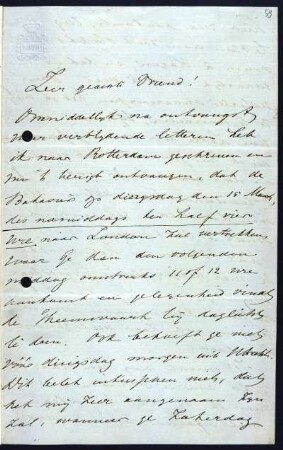 Zeer geachte Vriend!
Onmiddellijk na ontvangst
uwer verblijdende letteren heb
ik naar Rotterdam geschreven en
nu 't berigt ontvangen, dat de
Batavier op dingsdag den 15 Maart,
des namiddags ten half vier
ure naar London zal vertrekken
waar ge dan den volgenden
middag omstreeks 11 of 12 ure
aankomt en gelegenheid vindt
de Theemsvaart bij daglicht
te doen. Ook behoeft ge niet
vóór dingsdag morgen uit Utrecht.
Dit belet intusschen niet, dat
het mij zeer aangenaam zijn
zal, wanneer ge Zaturdag